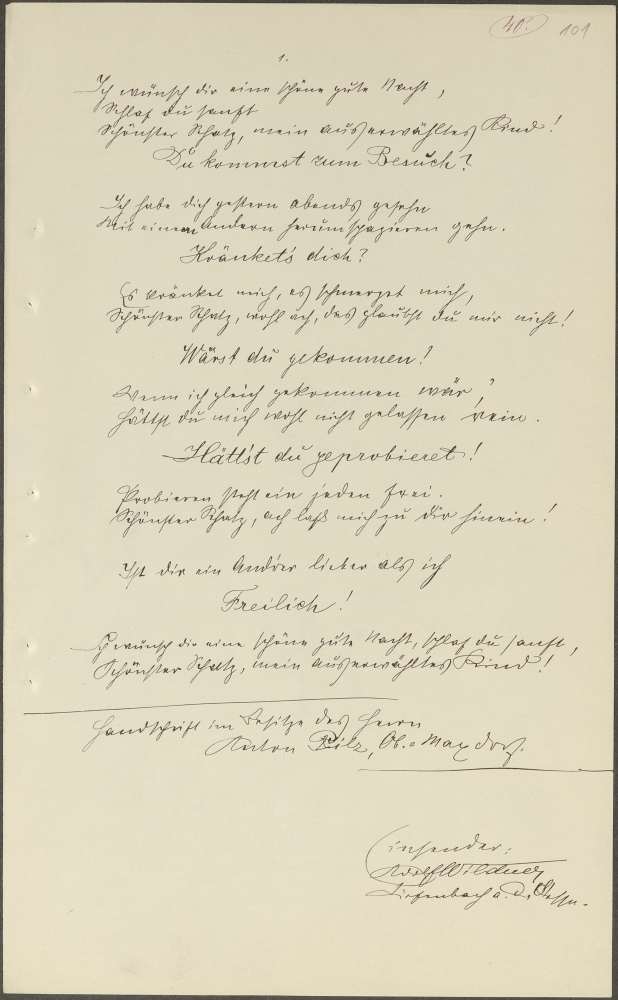 40. 101
1.
Ich wünsch dir eine schöne gute Nacht,
Schlaf du sanft
Schönster Schatz, mein auserwähltes Kind!
Du kommst zum Besuch?
Ich habe dich gestern abends gesehn
Mit einem Andern herumspazieren gehn.
Kränket's dich?
Es kränket mich, es schmerzet mich,
Schönster Schatz, wohl ach, das glaubst du mir nicht!
Wärst du gekommen!
Wenn ich gleich gekommen wär,
hättst du mich wohl nicht gelassen rein.
Hätt'st du geprobieret!
Probieren steht ein jeden frei.
Schönster Schatz, ach laß mich zu dir hinein!
Ist dir ein Andrer lieber als ich
Freilich!
wünsch dir eine schöne gute Nacht, schlaf du sanft,
Schönster Schatz, mein auserwähltes Kind!
Handschrift im Besitze des Herrn
Anton Pilz, Ob.-Maxdorf.
Einsender:
Adolf Wildner
Tiefenbach a. d. Desse.